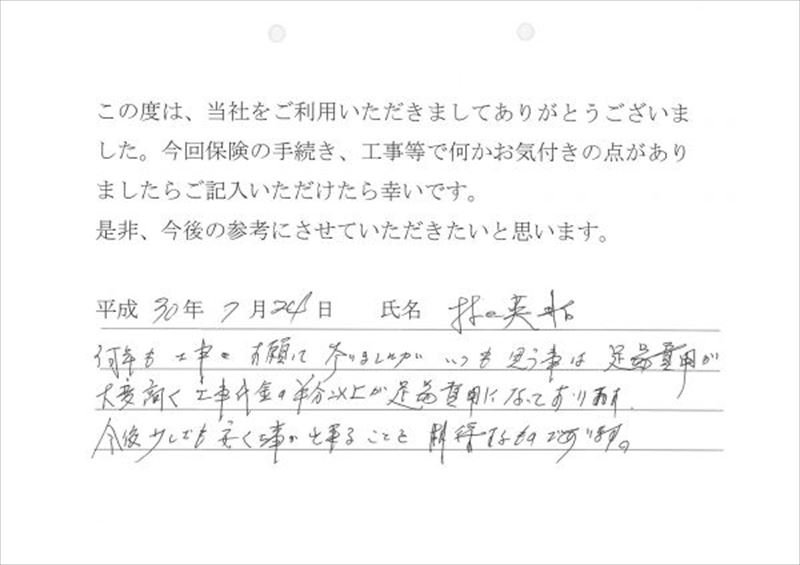 この度は、当社をご利用いただきましてありがとうございま
した。今回保険の手続き、工事等で何かお気付きの点があり
ましたらご記入いただけたら幸いです。
是非、今後の参考にさせていただきたいと思います。
平成 30年 7月24日 氏名 英
何年も工事をお願して参りましたが いつも思う事は 足場費用が
大変高く 工事代金の半分以上が足場費用になっております.
今後少しでも安く工事が出来ることを 期待するものであります。